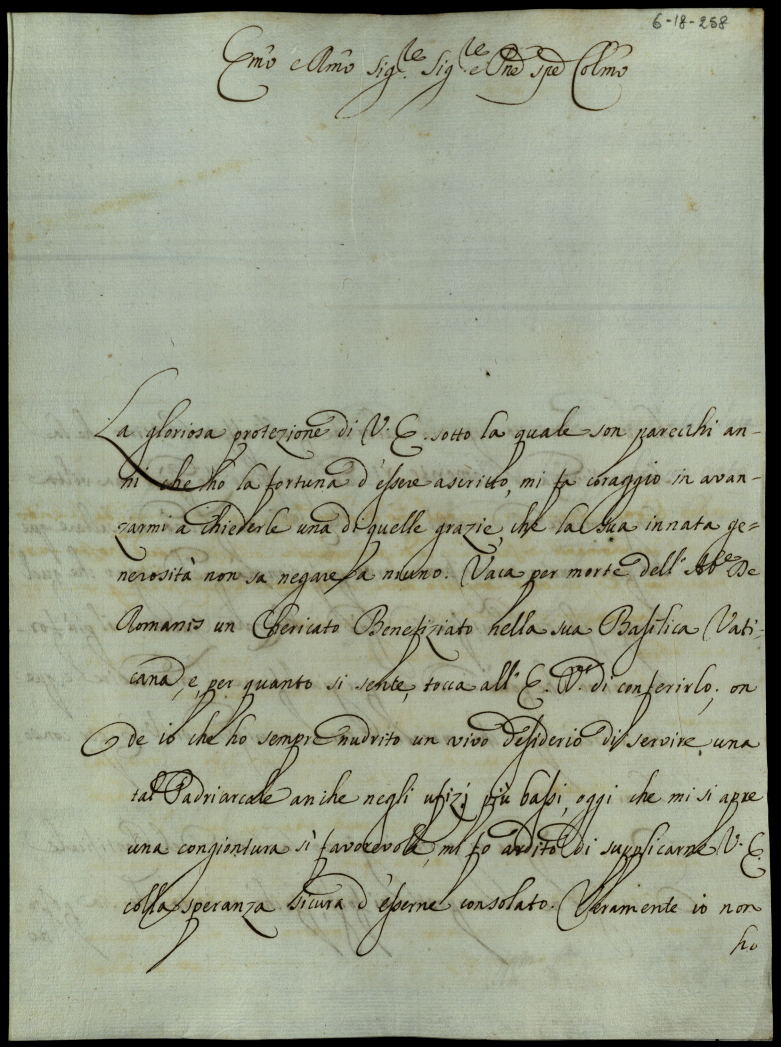 6-18-258
Emo e Rmo Sig.re Sig.re e Pne spe Colmo
La gloriosa protezione di V. E. sotto la quale son parecchi an-
ni che ho la fortuna d'essere ascritto, mi fa coraggio in avan-
zarmi a chiederle una di quelle grazie, che la sua innata ge-
nerosità non sa negare a niuno. Vaca per morte dell' Ab.e De
Romanis un Chericato Benefiziato nella sua Basilica Vati-
cana, e, per quanto si sente, tocca all' E. V.ra di conferirlo; on
de io che ho sempre nudrito un vivo desiderio di servire una
tal Padriarcale anche negli ufizj più bassi, oggi che mi si apre
una congiontura sì favorevole, mi fo ardito di supplicarne V. E.
colla speranza sicura d'esserne consolato. Veramente io non
ho